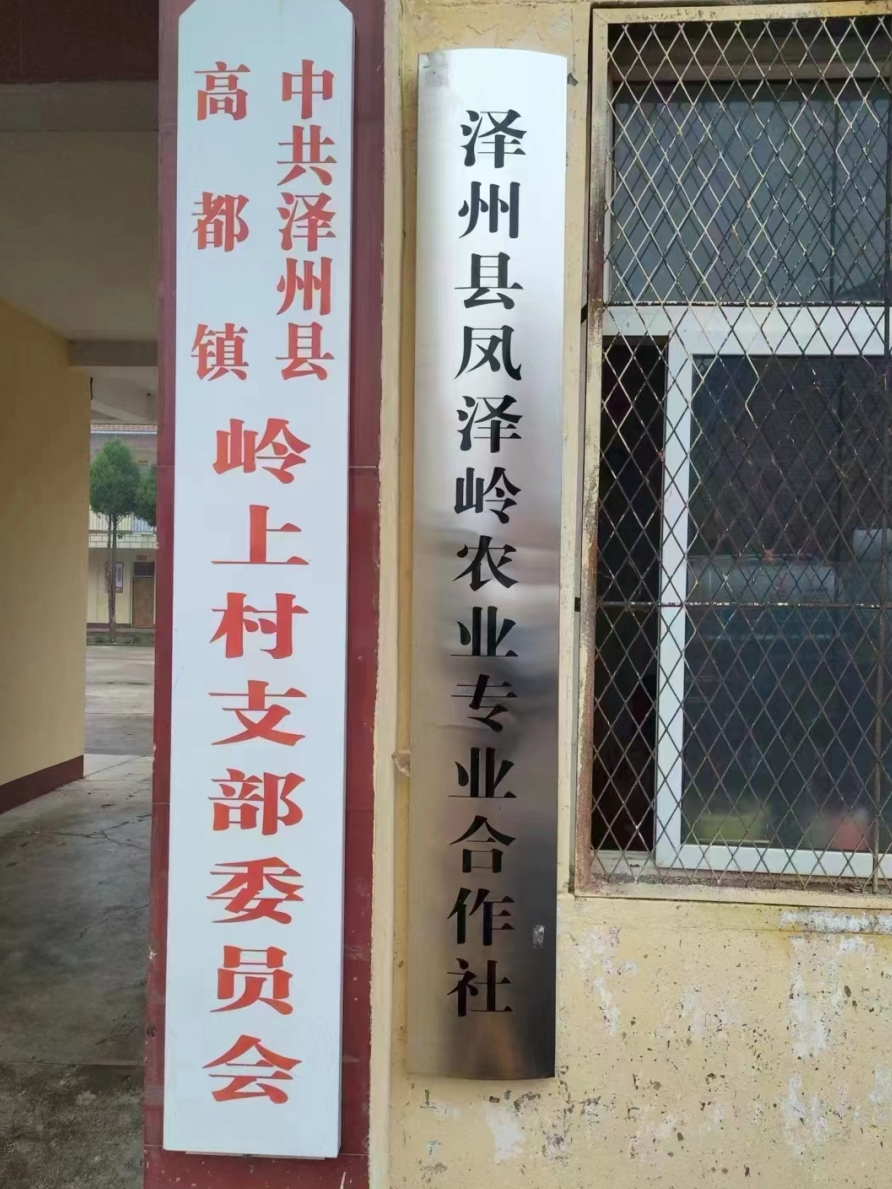 中共泽州县
高都镇
岭上村支部委员会
泽州县凤泽岭农业专业合作社